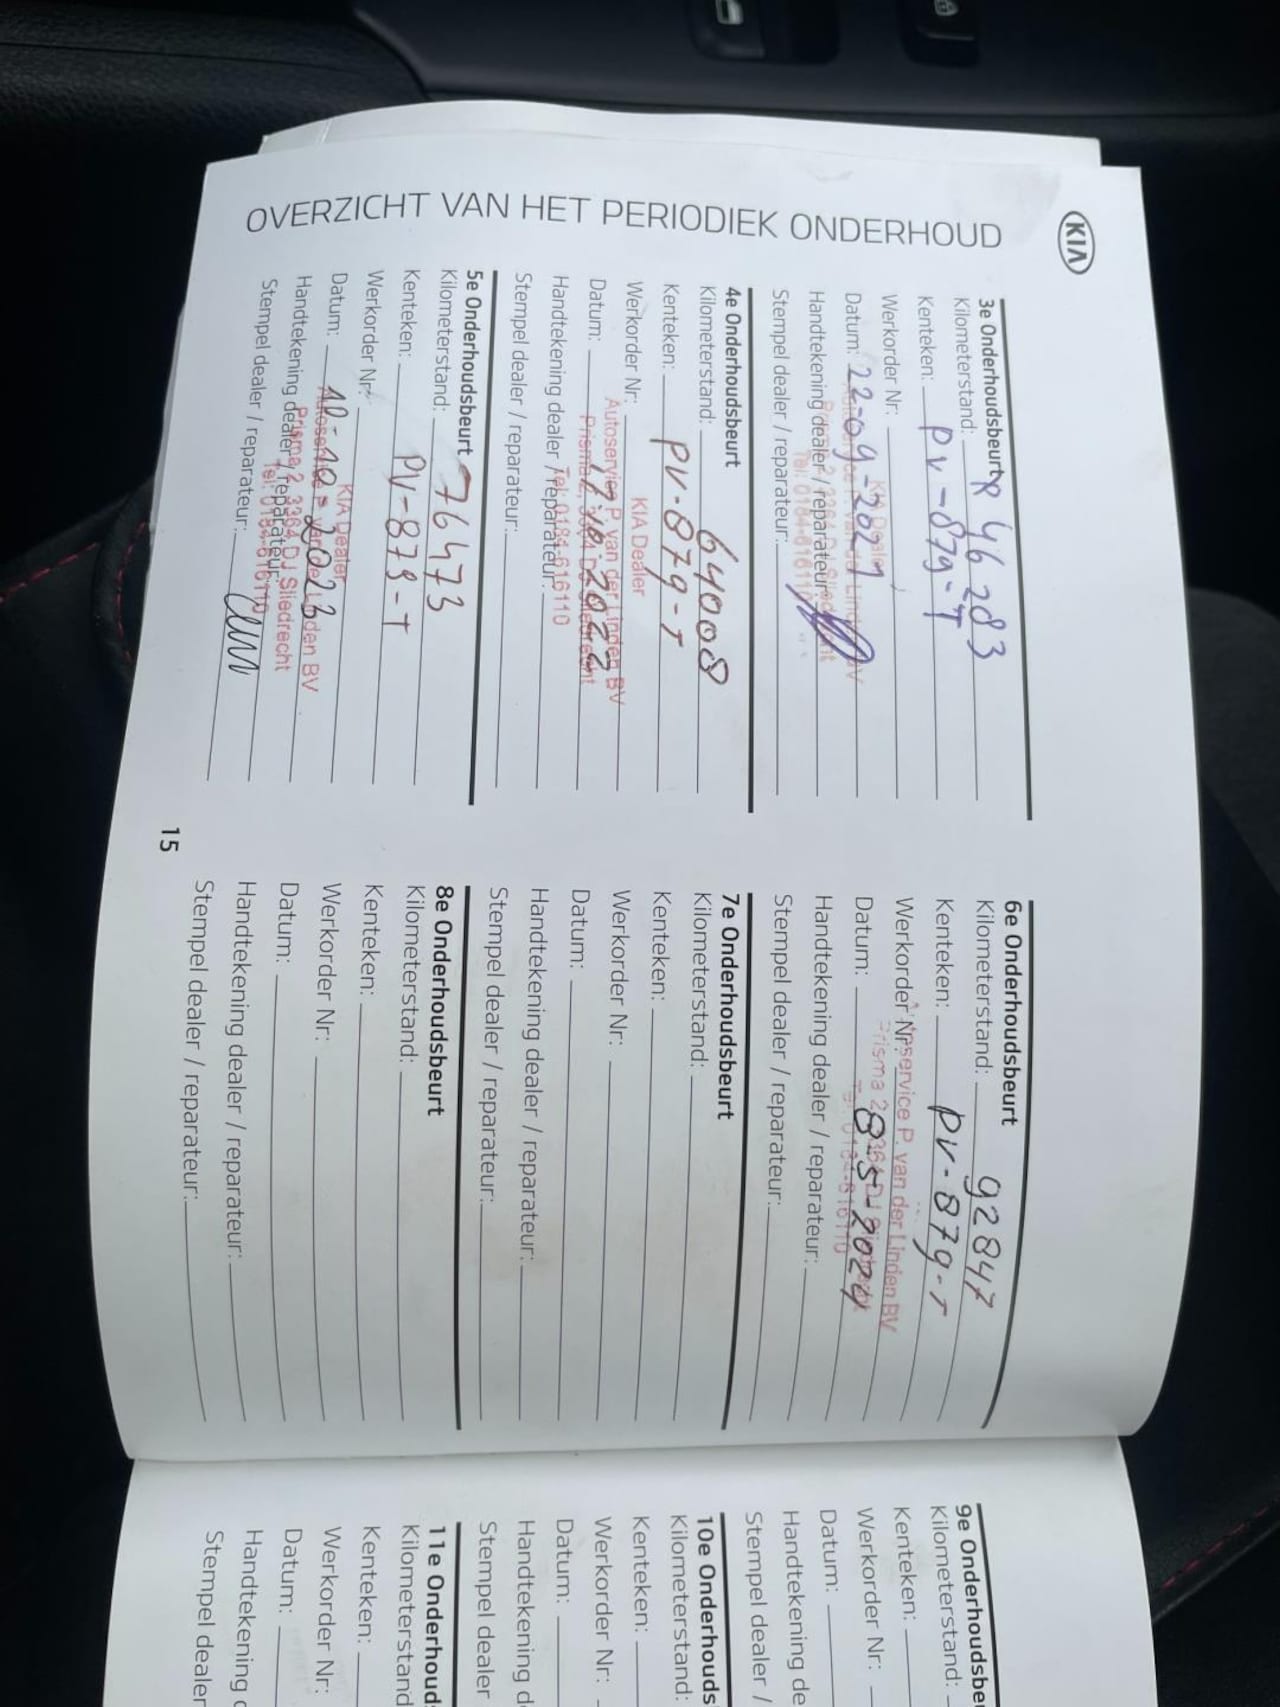 KIA
OVERZICHT VAN HET PERIODIEK ONDERHOUD
3e Onderhoudsbeurt
Kilometerstand: 46283
Kenteken: PV-879-T
Werkorder Nr:
Datum: 22-09-2021
Handtekening dealer / reparateur:
Stempel dealer / reparateur:
KIA Dealer
Tel: 0184-616110
4e Onderhoudsbeurt
Kilometerstand: 64008
Kenteken: PV-879-T
Werkorder Nr:
Datum:
Handtekening dealer / reparateur:
Stempel dealer / reparateur:
KIA Dealer
Autoservice P. van der Linden BV
Tel: 0184-616110
5e Onderhoudsbeurt
Kilometerstand: 76473
Kenteken: PV-879-T
Werkorder Nr:
Datum: 12-10-2023
Handtekening dealer / reparateur:
Stempel dealer / reparateur:
KIA Dealer
Autoservice P. van der Linden BV
Prisma 2, 3364 DJ Sliedrecht
Tel: 0184-616110
6e Onderhoudsbeurt
Kilometerstand: 92847
Kenteken: PV-879-T
Werkorder Nr:
Datum: 8-5-2024
Handtekening dealer / reparateur:
Stempel dealer / reparateur:
Autoservice P. van der Linden BV
Tel: 0184-616110
7e Onderhoudsbeurt
Kilometerstand:
Kenteken:
Werkorder Nr:
Datum:
Handtekening dealer / reparateur:
Stempel dealer / reparateur:
8e Onderhoudsbeurt
Kilometerstand:
Kenteken:
Werkorder Nr:
Datum:
Handtekening dealer / reparateur:
Stempel dealer / reparateur:
15
9e Onderhoudsbe
Kilometerstand:
Kenteken:
Werkorder Nr:
Datum:
Handtekening de
Stempel dealer /
10e Onderhouds
Kilometerstand:
Kenteken:
Werkorder Nr:
Datum:
Handtekening d
Stempel dealer
11e Onderhoud
Kilometerstand
Kenteken:
Werkorder Nr:
Datum:
Handtekening
Stempel dealer